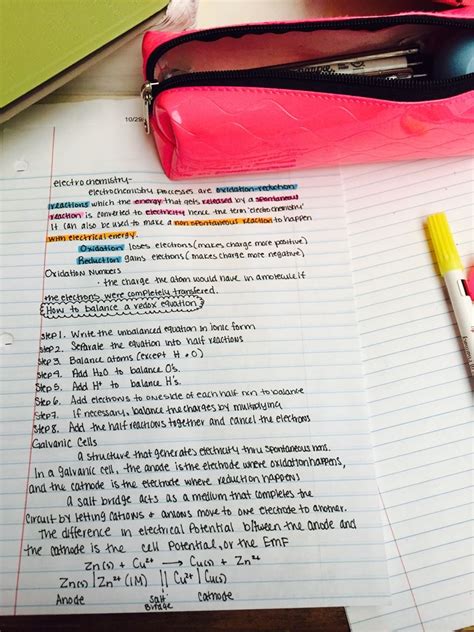 10/28
electrochemistry-
electrochemistry processes are oxidation-reduction
reactions which the energy that gets released by a spontaneous
reaction is converted to electricity hence the term 'electrochemistry'
It can also be used to make a non spontaneous reaction to happen
with electrical energy.
Oxidation loses electrons (makes charge more positive)
Reduction gains electrons (makes charge more negative)
Oxidation Numbers
• the charge the atom would have in a molecule if
the electrons were completely transferred.
How to balance a redox equation
Step 1. Write the unbalanced equation in ionic form
Step 2. Separate the equation into half reactions
Step 3. Balance atoms (except H + O)
Step 4. Add H₂O to balance O's.
Step 5. Add H⁺ to balance H's.
Step 6. Add electrons to one side of each half rxn to balance
Step 7. If necessary, balance the charges by multiplying
Step 8. Add the half reactions together and cancel the electrons
Galvanic Cells
A structure that generates electricity thru spontaneous rxns.
In a galvanic cell, the anode is the electrode where oxidation happens,
and the cathode is the electrode where reduction happens
a salt bridge acts as a medium that completes the
circuit by letting cations + anions move to one electrode to another.
The difference in electrical potential between the anode and
the cathode is the cell potential, or the EMF
Zn(s) + Cu²⁺ → Cu(s) + Zn²⁺
Zn(s) | Zn²⁺ (1M) || Cu²⁺ | Cu(s)
Anode Salt Bridge Cathode